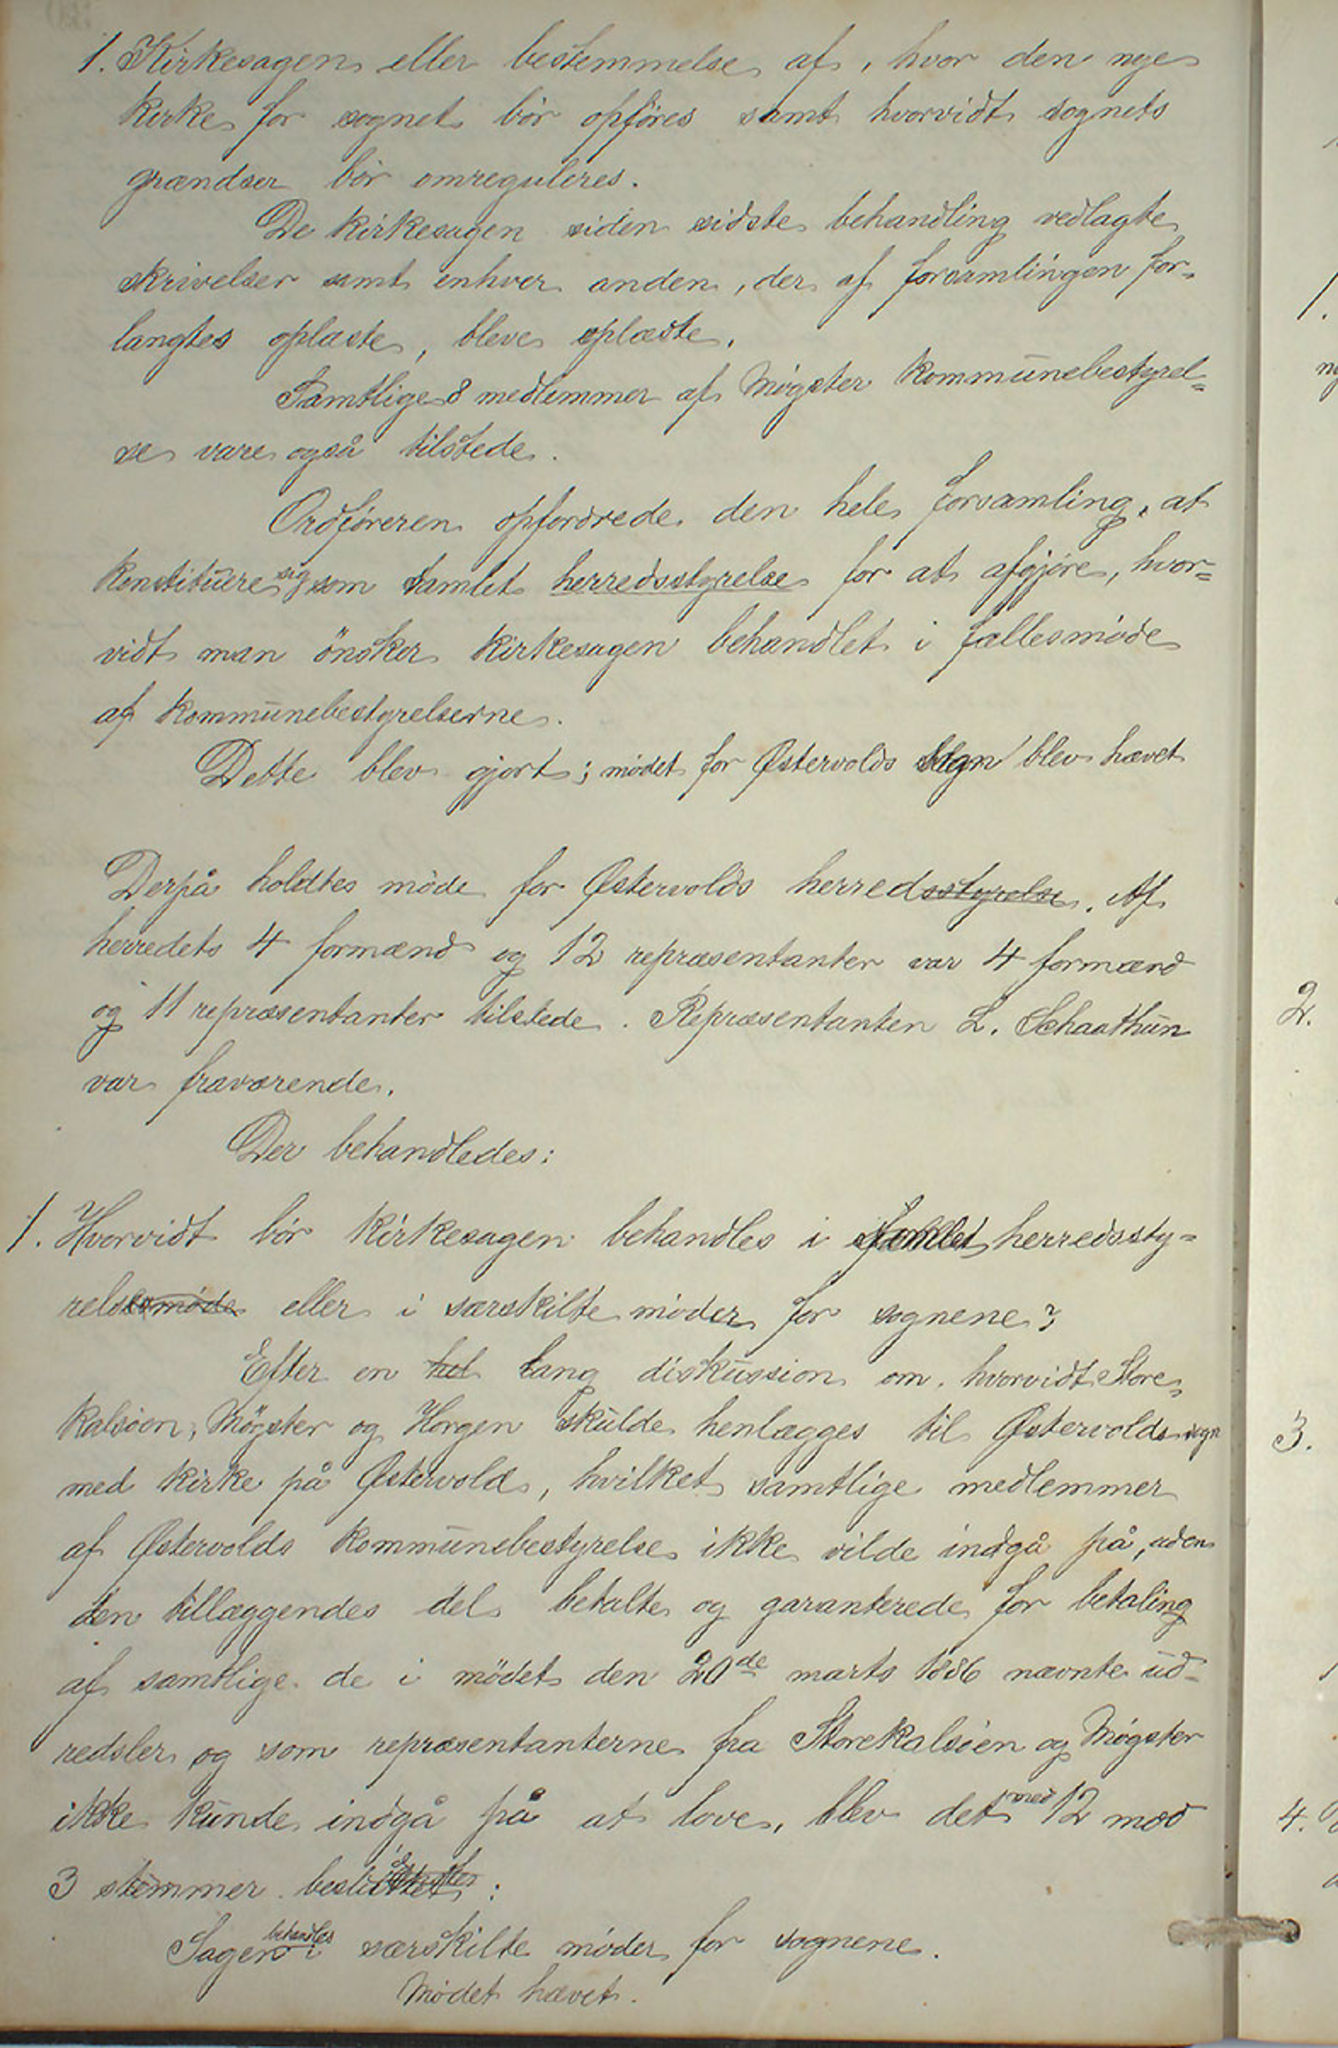 1. Kirkesagen eller bestemmelse af, hvor den nye
kirke for sognet bör opföres samt hvorvidt sognets
grændser bör omreguleres.
De kirkesagen siden sidste behandling vedlagte
skrivelser samt enhver anden, der af forsamlingen for-
langtes oplæste, bleve oplæste.
Samtlige 8 medlemmer af Møgster kommunebestyrel=
se vare også tilstede.
Ordføreren opfordrede den hele forsamling, at
konstituere sig som samlet herredsstyrelse for at afgjöre, hvor=
vidt man önsker kirkesagen behandlet i fællesmöde
af kommunebestyrelserne.
Dette blev gjort; mödet for Østervolds sogn blev hævet
Derpå holdtes möde for Østervolds herredsstyrelse. Af
herredets 4 formænd og 12 repræsentanter var 4 formænd
og 11 repræsentanter tilstede. Repræsentanten L. Schaathun
var fraværende.
Der behandledes:
1. Hvorvidt bör kirkesagen behandles i herredssty=
relsesmöde eller i særskilte möder for sognene?
Efter en hel lang diskussion om, hvorvidt Store-
kalsöen, Møgster og Horgen skulde henlægges til Østervolds sogn
med kirke på Østervold, hvilket samtlige medlemmer
af Østervolds kommunebestyrelse ikke vilde indgå på, uden
den tillæggendes del betalte og garanterede for betaling
af samtlige de i mödet den 20de marts 1886 nævnte ud-
redsler og som repræsentanterne fra Storekalsöen og Møgster
ikke kunde indgå på at love, blev det med 12 mod
3 stemmer besluttet:
Sagen behandles i særskilte möder for sognene.
Mödet hævet.
1.
2.
3.
4.